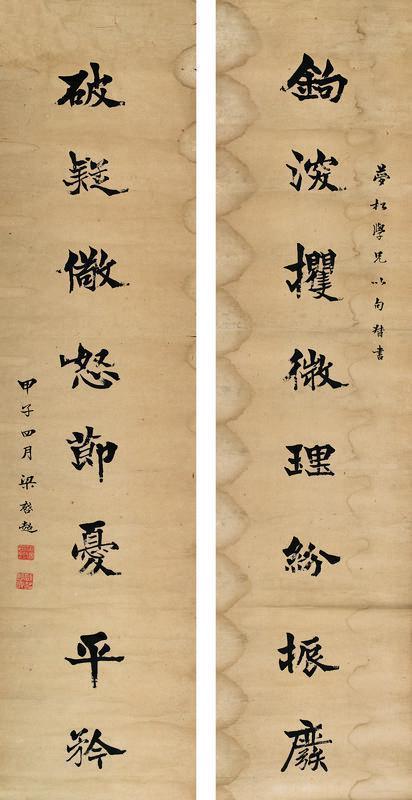 夢松學兄以句督書
鉤深攫微理紛振廢
破疑儆怒節憂平矜
甲子四月梁啟超